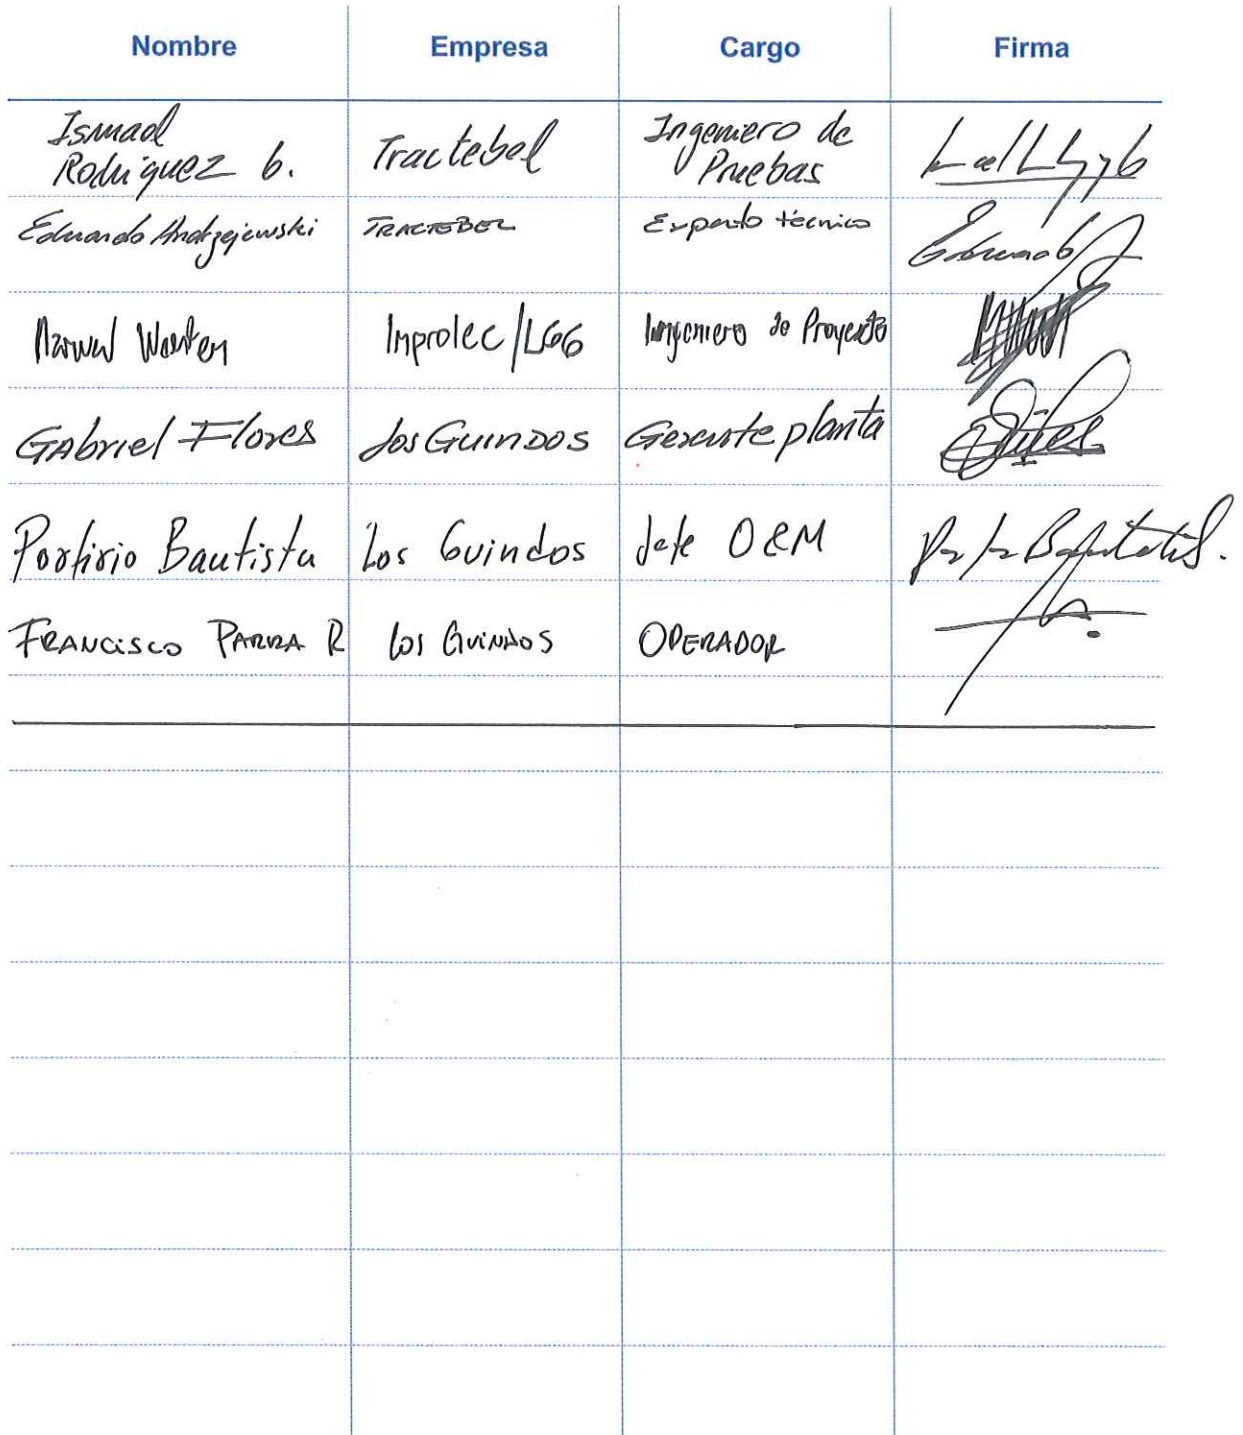 Nombre Empresa Cargo Firma
Ismael Rodriguez G. Tractebel Ingeniero de Pruebas
Eduardo Andrzejewski TRACTEBEL Experto técnico
Improlec/LGG Ingeniero de Proyecto
GAbriel Flores Los GuinDOS Gerente planta
Porfirio Bautista Los Guindos Jefe O&M
FRANCISCO PARRA R LOS GUINDOS OPERADOR